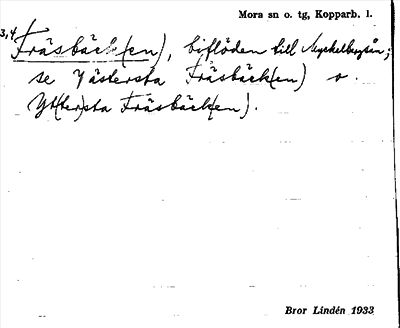 Mora sn o. tg, Kopparb. l.
3,4 Fräsbäck(en), biflöden till Myckelbysån;
se Yästersta Fräsbäck(en) o.
Yt(ter)sta Fräsbäck(en).
Bror Lindén 1933